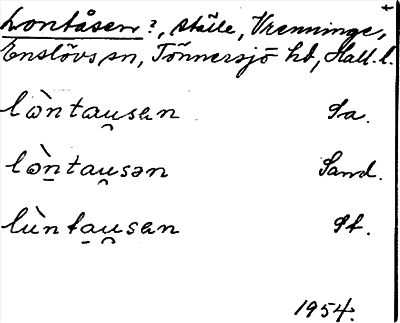 Lontåsen?, ställe, Vrenninge, +
Enslövs sn, Tönnersjö hd, Hall. l.
lòntau̯sən Sa.
lòntau̯sən Sand.
lùntau̯sən St.
1954.